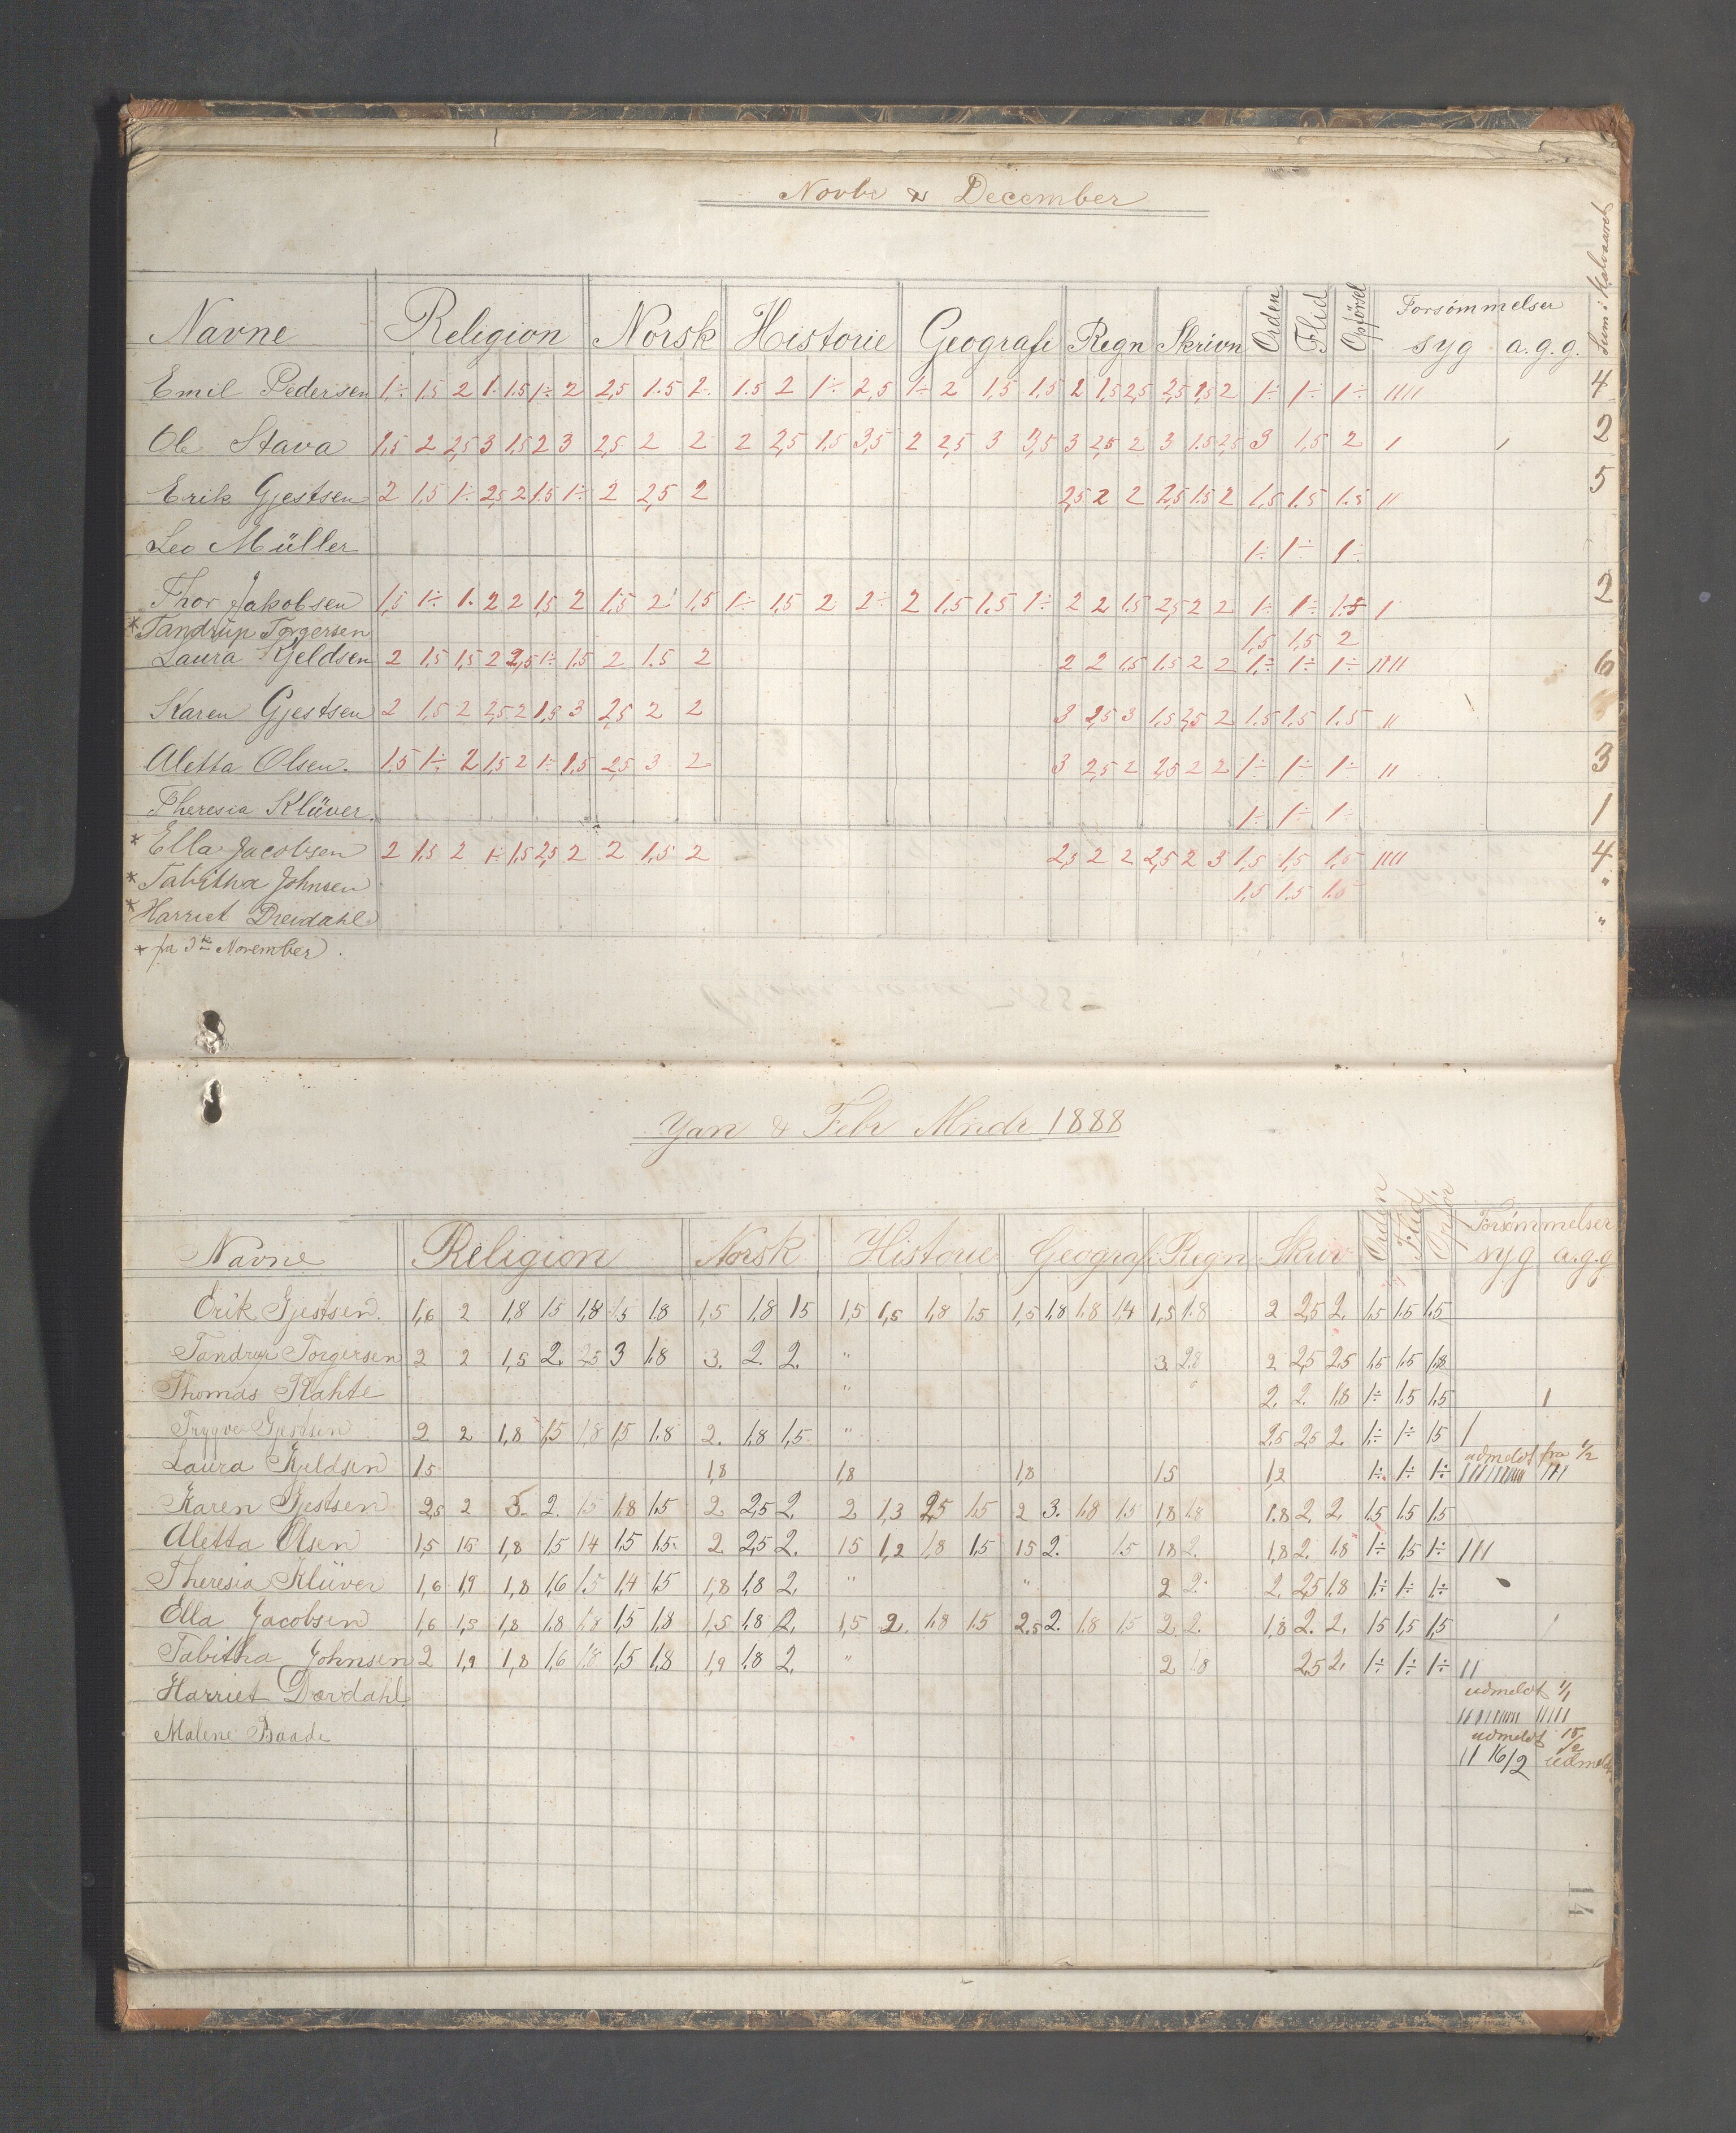 Novbr & December
Navne Religion Norsk Historie Geografi Regn Skrivn Orden Flid Opførsel Forsömmelser syg a.g.g. Sum i Halvaaret
Emil Pedersen 1÷ 1,5 2 1÷ 1.5 1÷ 2 2,5 1.5 2÷ 1.5 2 1÷ 2,5 1÷ 2 1,5 1,5 2 1,5 2,5 2,5 1,5 2 1÷ 1÷ 1÷ 1111 4
Ole Stava 1,5 2 2,5 3 1,5 2 3 2,5 2 2 2 2,5 1,5 3,5 2 2,5 3 3,5 3 2,5 2 3 1.5 2,5 3 1,5 2 1 1 2
Erik Gjestsen 2 1,5 1÷ 2,5 2 1.5 1÷ 2 2,5 2 2,5 2 2 2,5 1.5 2 1,5 1.5 1.5 11 5
Leo Müller 1÷ 1÷ 1÷
Thor Jakobsen 1,5 1÷ 1. 2 2 1,5 2 1,5 2 1,5 1÷ 1,5 2 2÷ 2 1,5 1,5 1÷ 2 2 1,5 2,5 2 2 1÷ 1÷ 1.5 1 2
* Tandrup Torgersen 1,5 1,5 2
Laura Kjeldsen 2 1,5 1,5 2 2,5 1÷ 1,5 2 1.5 2 2 2 1,5 1,5 2 2 1÷ 1÷ 1÷ 1111 6
Karen Gjestsen 2 1,5 2 2,5 2 1,5 3 2,5 2 2 3 2,5 3 1,5 2,5 2 1.5 1,5 1.5 11
Aletta Olsen. 1.5 1÷ 2 1,5 2 1÷ 1,5 2,5 3 2 3 2,5 2 2,5 2 2 1÷ 1÷ 1÷ 11 3
Theresia Klüver. 1÷ 1÷ 1÷ 1
* Ella Jacobsen 2 1,5 2 1÷ 1,5 2,5 2 2 1,5 2 2,5 2 2 2,5 2 3 1,5 1,5 1,5 1111 4
* Tabitha Johnsen 1,5 1.5 1.5 "
* Harriet Dreidahl "
* fra 3die November.
Jan & Febr Mndr 1888
Navne Religion Norsk Historie Geografi Regn Skriv Orden Flid Opfør Forsömmelser syg a.g.g
Erik Gjestsen. 1,6 2 1,8 1,5 1,8 1,5 1.8 1,5 1.8 1,5 1,5 1,5 1,8 1,5 1,5 1,8 1,8 1,4 1,5 1.8 2 2,5 2. 1,5 1,5 1,5
Tandrup Torgersen 2 2 1,5 2. 2,5 3 1.8 3. 2. 2. " 3 2.8 2 2,5 2,5 1,5 1,5 1,8
Thomas Rahte " " 2. 2. 1.8 1÷ 1,5 1,5 1
Trygve Gjestsen 2 2 1,8 1,5 1,8 1,5 1.8 2. 1.8 1,5. " 2,5 2,5 2. 1÷ 1÷ 1,5 1
udmeldt fra 1/2
Laura Kjeldsen 1,5 1,8 1,8 1,8 1,5 1,2 1÷ 1÷ 1÷ 111
Karen Gjestsen 2,5 2 3. 2. 1,5 1,8 1,5 2. 2,5 2. 2 1,3 2,5 1,5 2 3. 1,8 1,5 1,8 1,8 1.8 2. 2. 1,5 1,5 1,5
Aletta Olsen 1,5 1,5 1,8 1,5 1,4 1,5 1,5. 2. 2,5 2. 1,5 1,2 1,8 1,5 1,5 2. 1.5 1,8 2. 1,8 2. 1.8 1÷ 1,5 1÷ 111
Theresia Klüver 1,6 1,9 1,8 1,6 1,5 1,4 1,5 1,8 1,8 2. " " 2 2. 2. 2,5 1.8 1÷ 1÷ 1÷
Ella Jacobsen 1,6 1,5 1,8 1,8 1,8 1,5 1,8 1,5 1,8 2. 1,5 2. 1,8 1,5 2,5 2. 1,8 1,5 2. 2. 1,8 2. 2. 1,5 1,5 1,5 1
Tabitha Johnsen 2 1,9 1,8 1,6 1,8 1,5 1,8 1,9 1,8 2. " 2 1.8 2,5 2. 1÷ 1÷ 1÷ 11
Harriet Dreidahl. udmeldt 1/1
Malene Baade udmeldt 15/2
11 16/2 udmeldt
14